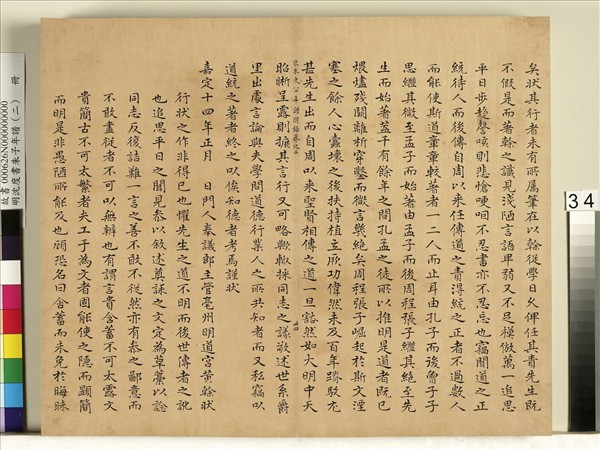 矣狀其行者未有所屬筆在以榦從學日久俾任其責先生既
不假是而著榦之識見淺陋言語卑弱又不足模倣萬一追思
平日步趨謦咳則悲愴哽咽不忍書亦不忍忘也竊聞道之正
統待人而後傳自周以來任傳道之責得統之正者不過數人
而能使斯道章章較著者一二人而止耳由孔子而後曾子子
思繼其微至孟子而始著由孟子而後周程張子繼其絕至先
生而始著蓋千有餘年之間孔孟之徒所以推明是道者既已
煨燼殘闕離析穿鑿而微言㡬絕矣周程張子崛起於斯文湮
塞之餘人心蠹壞之後扶持植立厥功偉然未及百年踳駮尤
甚先生出而自周以來聖賢相傳之道一旦豁然如大明中天
昭晰呈露則摭其言行又可略歟輒採同志之議敬述世系爵
里出處言論與夫學問道德行業人之所共知者而又私竊以
道統之著者終之以俟知德者考焉謹狀
嘉定十四年正月 日門人奉議郎主管亳州明道宮黃榦狀
行狀之作非得已也懼先生之道不明而後世傳者之訛
也追思平日之聞見叅以叙述奠誄之文定為草藁以諗
同志反復詰難一言之善不敢不從然亦有叅之鄙意而
不敢盡從者不可以無辨也有謂言貴含蓄不可太露文
貴簡古不可太繁者夫工于為文者固能使之隱而顯簡
而明是非愚陋所能及也顧恐名曰含蓄而未免於晦昧
故書 000626N000000000
明沈度書朱子年譜（二） 冊
34